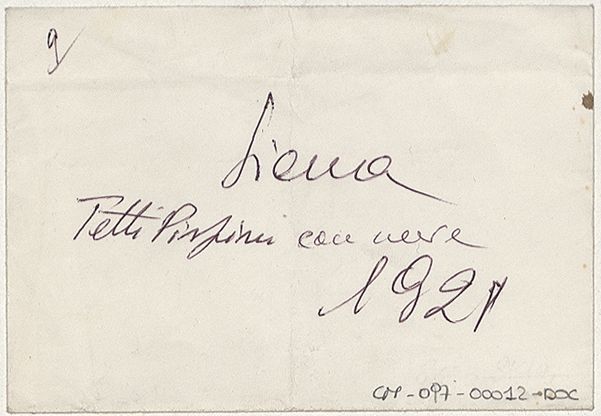 9/
Siena
Tetti con neve
1921
CM-097-00012-DOC